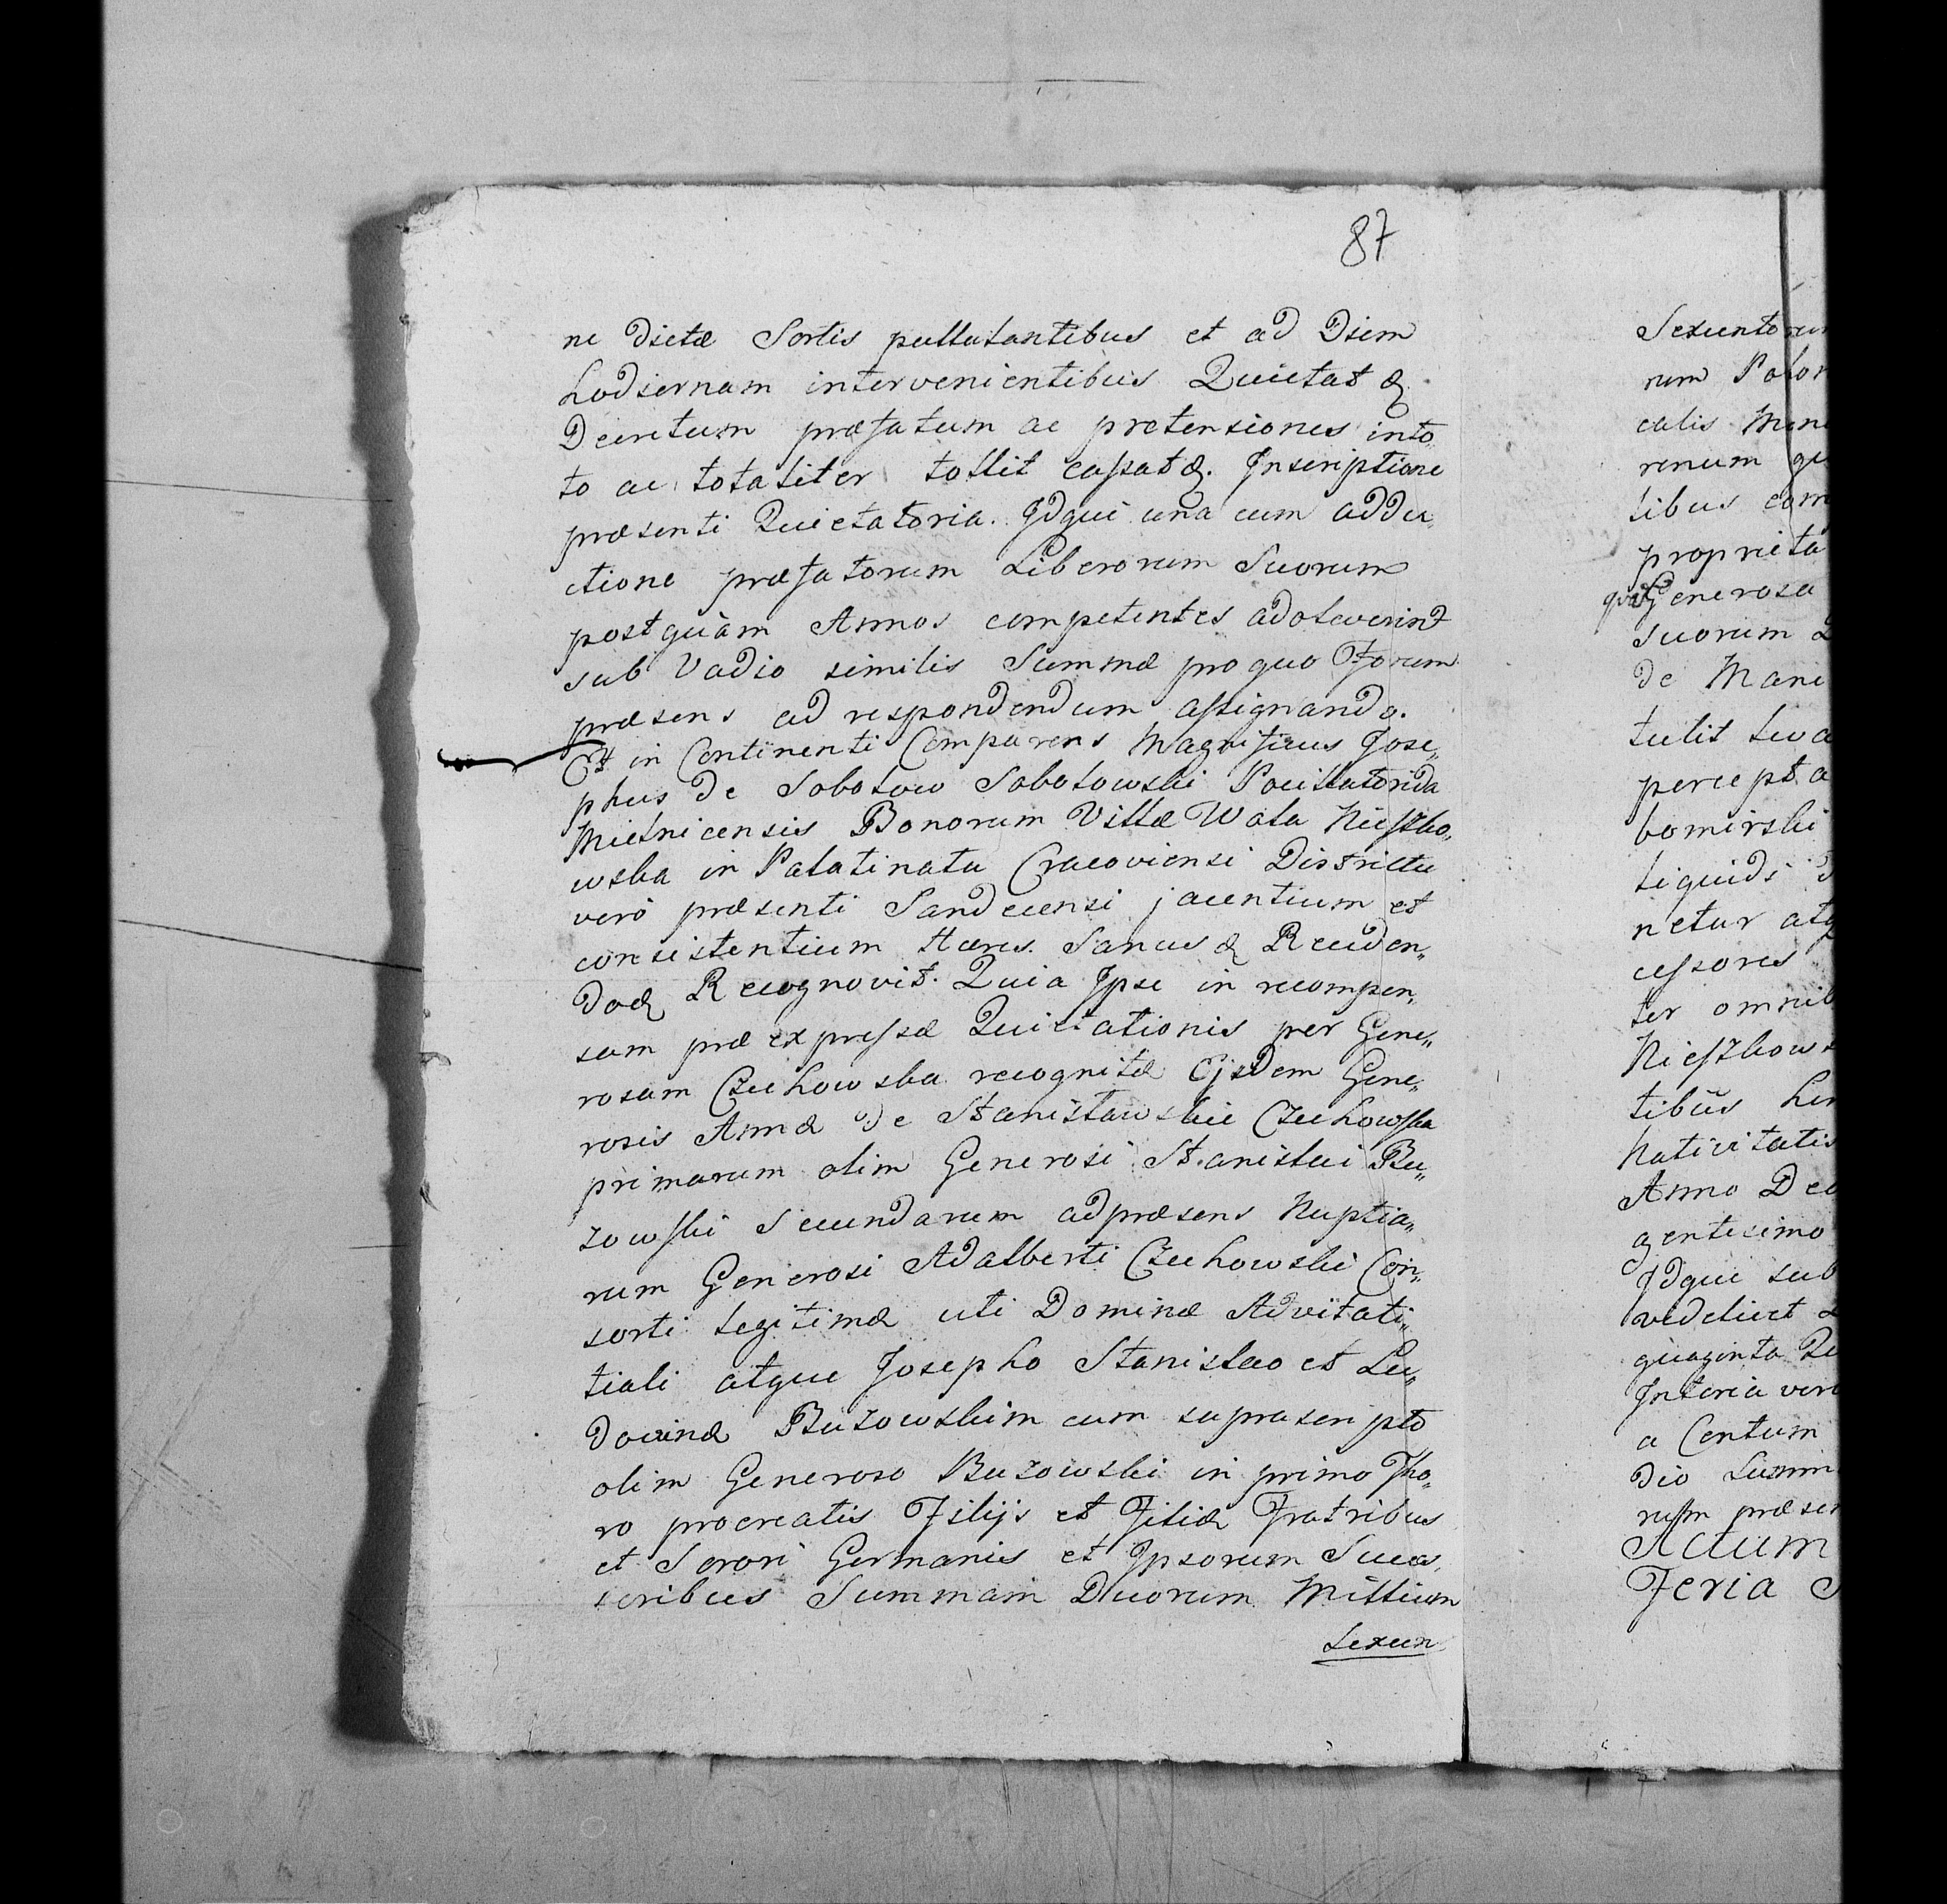 87
ne dictæ Sortis pullulantibus et ad Diem
hodiernam intervenientibus Quietat &
Decretum præfatum ac pretensiones in to„
to ac totaliter tollit cassat &. Inscriptione
præsenti Quietatoria. Idque una cum addu„
ctione præfatorum Liberorum Suorum
postquàm Annos competentes adoleverint
sub Vadio similis Summæ pro quo Forum
præsens ad respondendum assignando.
Et in Continenti Comparens Magnificus Jose„
phus de Sobolow Sobolowski
Mielnicensis Bonorum Villæ Wola Nieszko„
wska in Palatinatu Cracoviensi Districtu
verò præsenti Sandecensi jacentium et
consistentium Hæres. Sanus &
Recognovit. Quia Ipse in recompen„
sam præexpressæ Quietationis per Gene„
rosam Czechowska recognitæ Ejsdem Gene„
rosis Annæ de Stanisławskie Czechowska
primarum olim Generosi Stanislai Bu„
zowski secundarum ad præsens Nuptia„
rum Generosi Adalberti Czechowski Con„
sorti legitimæ uti Dominæ Advitali„
tiali atque Josepho Stanislao et Lu„
dovinæ Buzowskim cum suprascripto
olim Generoso Buzowski in primo Tho„
ro procreatis Filijs et Filiæ Fratribus
et Sorori Germanis et Ipsorum Succes„
soribus Summam Duorum Millium
Sexcen„
Sexcentorum
rum Polon
calis Mone
renum qu
libus com
proprieta
quàGenerosa
suorum
de Mani
tulit leva
percepta
bomirski
liquidi
netur atq
cessores
ter omnib
Nieszkows
tibus
Nativitatis
Anno
gentesimo
Idque sub
videlicet
quaginta
Interia vero
a Centum
dio
rum præsen
Actum
Feria S